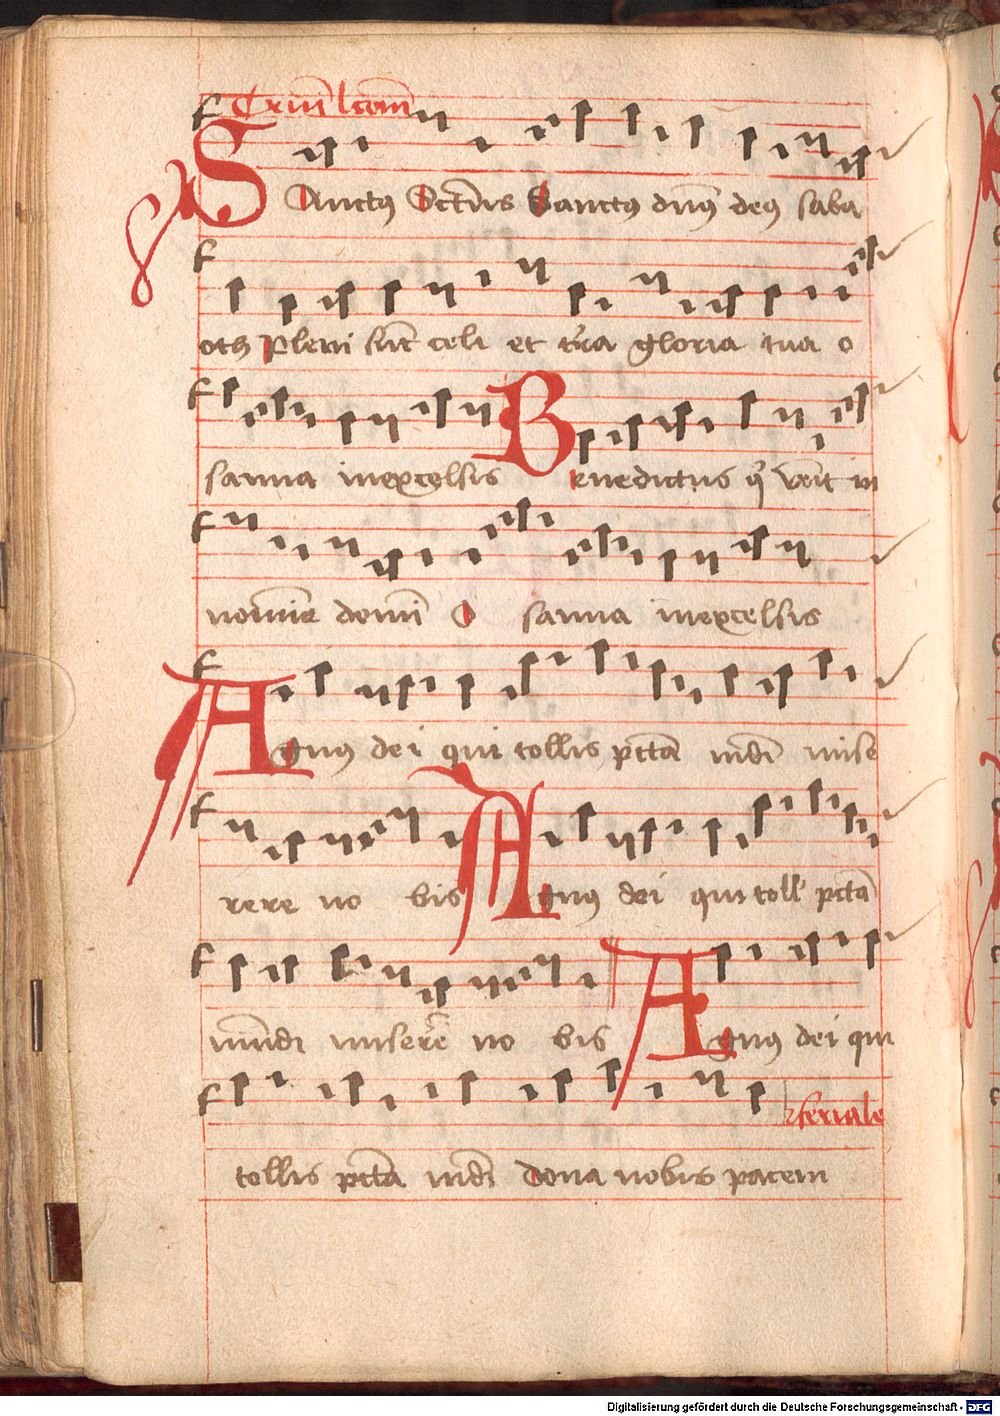 Sanctus Sctūs Sanctus dn̄s deus saba
oth Pleni sūt celi et t'ra gloria tua o
sanna inexcelsis Benedictus q' venit in
nomine domī O sanna inexcelsis
Agnus dei qui tollis pcta mdi mise
rere no bis Agnus dei qui toll' pcta
mūdi miserere no bis Agnus dei qui
feriale
tollis pcta mdi dona nobis pacem
Digitalisierung gefördert durch die Deutsche Forschungsgemeinschaft - DFG